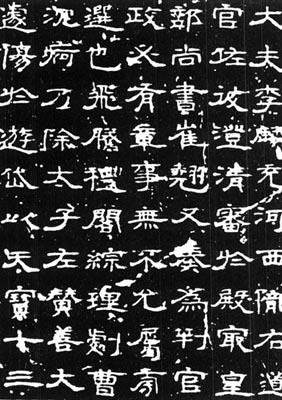 大夫李麟充河西隴右道
官佐彼澄清審於殿冣皇
部尚書崔翹又奏為判官
政乂有章事無不允屬帝
選也飛騰禮闈綜理劇曹
沉痾乃除太子左贊善大
遽傷於遊岱以天寶十三